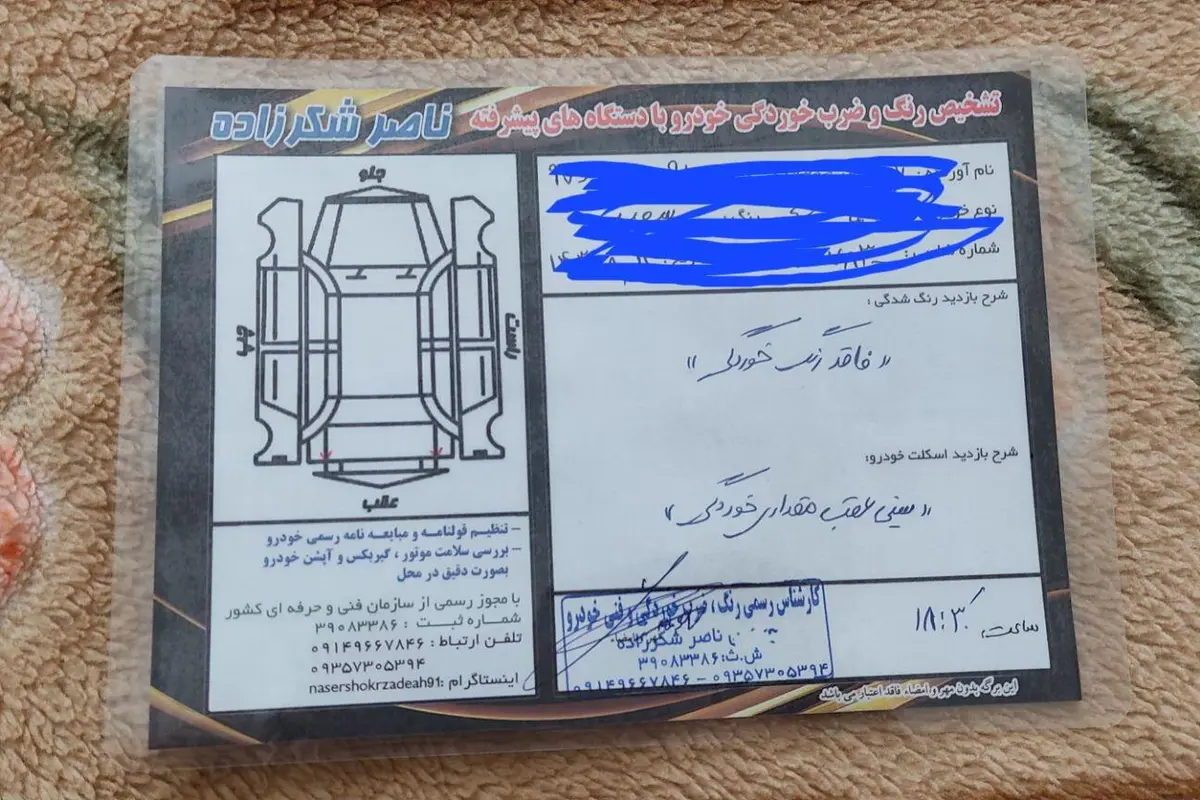 تشخیص رنگ و ضرب خوردگی خودرو با دستگاه های پیشرفته
ناصر شکرزاده
نام آور
نوع
شماره
شرح بازدید رنگ شدگی :
« فاقد رنگ خوردگی »
شرح بازدید اسکلت خودرو:
« سینی عقب مقداری خوردگی »
ساعت: ۱۸:۳۰
کارشناس رسمی رنگ ، ضرب خوردگی و فنی خودرو
ناصر شکرزاده
ش.ث: ۳۹۰۸۳۳۸۶
۰۹۱۴۹۶۶۷۸۴۶ - ۰۹۳۵۷۳۰۵۳۹۴
این برگه بدون مهر و امضاء فاقد اعتبار می باشد
جلو
چپ
راست
عقب
- تنظیم قولنامه و مبایعه نامه رسمی خودرو
- بررسی سلامت موتور ، گیربکس و آپشن خودرو
بصورت دقیق در محل
با مجوز رسمی از سازمان فنی و حرفه ای کشور
شماره ثبت : ۳۹۰۸۳۳۸۶
تلفن ارتباط : ۰۹۱۴۹۶۶۷۸۴۶
۰۹۳۵۷۳۰۵۳۹۴
اینستاگرام :nasershokrzadeah91